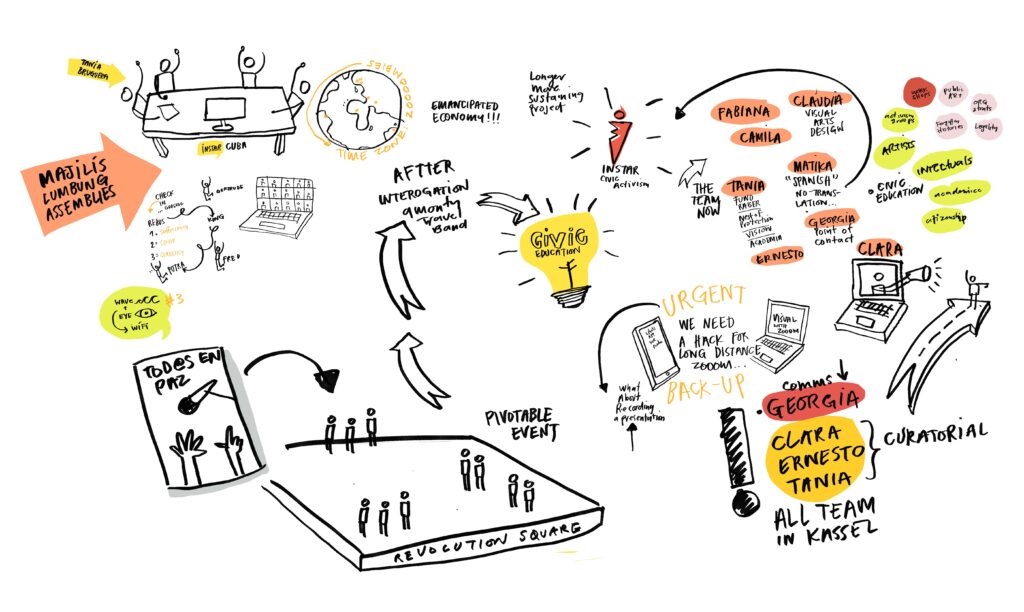 TANIA
BRUGUERA
INSTAR CUBA
TIME ZONE: ZOOOMBIES
EMANCIPATED
ECONOMY!!!
MAJILIS
LUMBUNG
ASSEMBLIES
CHECK
IN
GERTRUDE
KUNG
1.
2.
3.
PUTRA
FRED
WAVE
EYE
WIFI
#3
TOD@S EN
PAZ
AFTER
INTEROGATION
amonty
travel
Band
CIVIC
EDUCATION
PIVOTABLE
EVENT
REVOLUTION SQUARE
Longer
More
Sustaining
Project
INSTAR
Civic
Activism
THE
TEAM
NOW
FABIANA
CAMILA
CLAUDIA
VISUAL
ARTS
DESIGN
TANIA
FUND
RAISER
Nest of
Protection
VISION
ACADEMIA
ERNESTO
MATIKA
"SPANISH"
NO-TRANS-
LATION...
GEORGIA
Point of
contact
CLARA
WORK
SHOPS
PUBLIC
ART
activism
groups
Legality
ARTISTS
INTELECTUALS
CIVIC
EDUCATION
academics
citizenship
URGENT
WE NEED
A HACK FOR
LONG DISTANCE
ZOOOM...
BACK-UP
VISUAL
WITH
ZOOOM
What
About
Recording
a presentation
comms
GEORGIA
CLARA
ERNESTO
TANIA
CURATORIAL
ALL TEAM
IN KASSEL